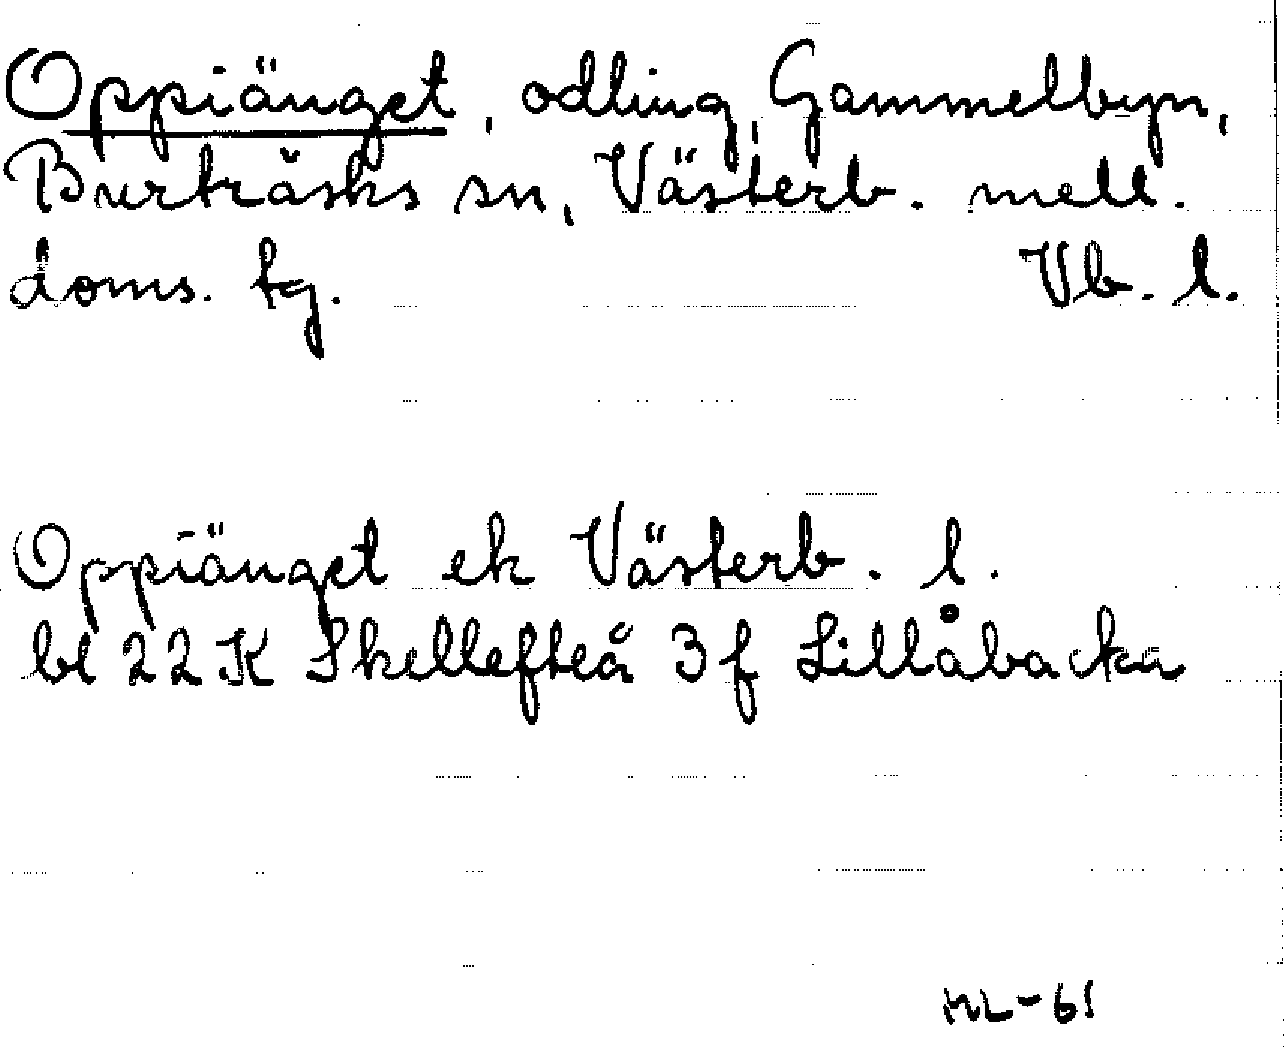 Oppiänget, odling, Gammelbyn,
Burträsks sn, Västerb. mell.
doms. tg. Vb. l.
Oppiänget ek Västerb. l.
bl 22K Skellefteå 3f Lillåbacka
ML-61